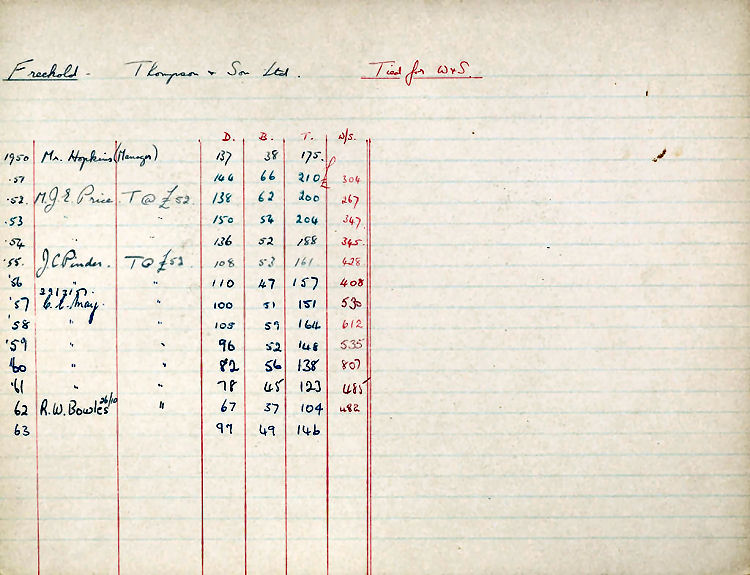 Freehold - Thompson & Son Ltd. Tied for W & S.
D. B. T. W/S.
1950 Mr. Hopkins (Manager) 137 38 175.
.51 144 66 210 £ 304
.52. M.J.E. Price. T @ £52. 138 62 200 267
.53 " " 150 54 204 347.
.54 " " 136 52 188 345.
'55. J.C. Pinder. T @ £52. 108 53 161 428
'56 " " 110 47 157 408
'57 May. " 100 51 151 530
'58 " " 105 59 164 612
'59 " " 96 52 148 535
'60 " " 82 56 138 807
'61 " " 78 45 123 485
62 R.W. Bowles 26/10 " 67 37 104 482
63 97 49 146